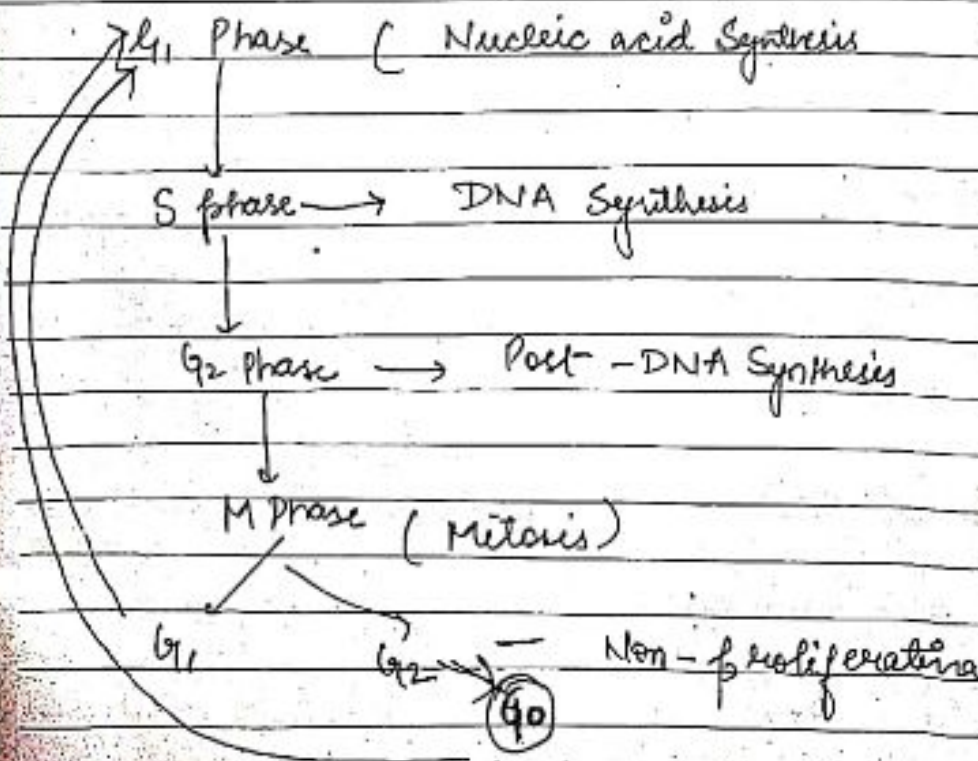 G1 Phase ( Nucleic acid Synthesis
S phase → DNA Synthesis
G2 Phase → Post - DNA Synthesis
M Phase ( Mitosis )
G1 G2 → G0 — Non-proliferating